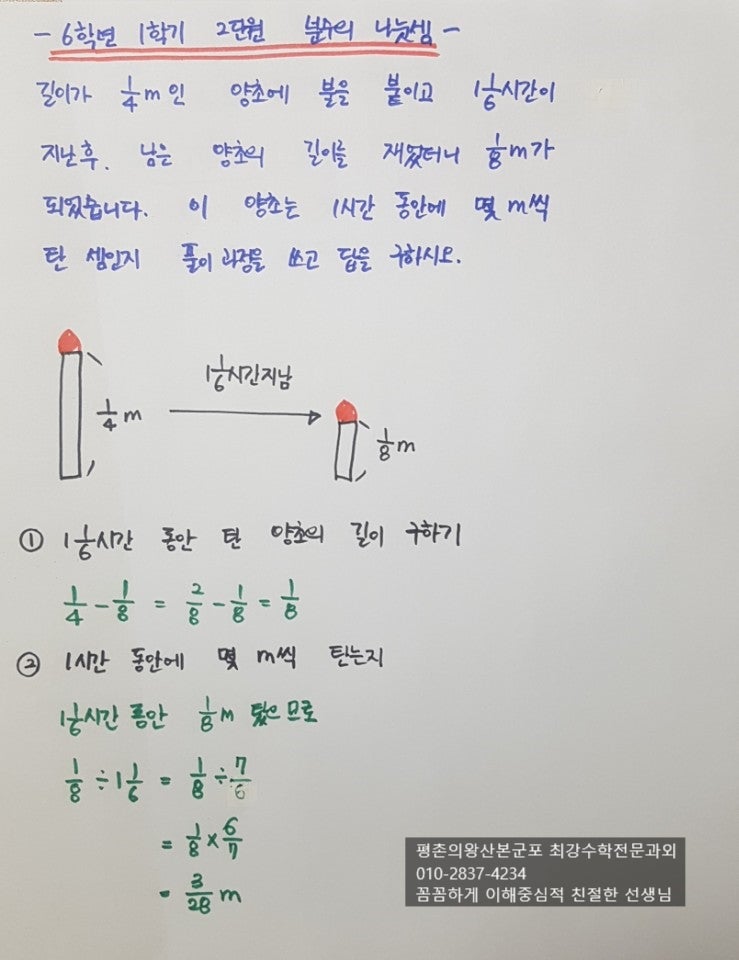 - 6학년 1학기 2단원 분수의 나눗셈 -
길이가 1/4 m인 양초에 불을 붙이고 1 1/6시간이
지난후, 남은 양초의 길이를 재었더니 1/8 m가
되었습니다. 이 양초는 1시간 동안에 몇 m씩
탄 셈인지 풀이 과정을 쓰고 답을 구하시오.
1 1/6시간지남
1/4 m
1/8 m
① 1 1/6시간 동안 탄 양초의 길이 구하기
1/4 - 1/8 = 2/8 - 1/8 = 1/8
② 1시간 동안에 몇 m씩 탄는지
1 1/6시간 동안 1/8 m 탔으므로
1/8 ÷ 1 1/6 = 1/8 ÷ 7/6
= 1/8 × 6/7
= 3/28 m
평촌의왕산본군포 최강수학전문과외
010-2837-4234
꼼꼼하게 이해중심적 친절한 선생님